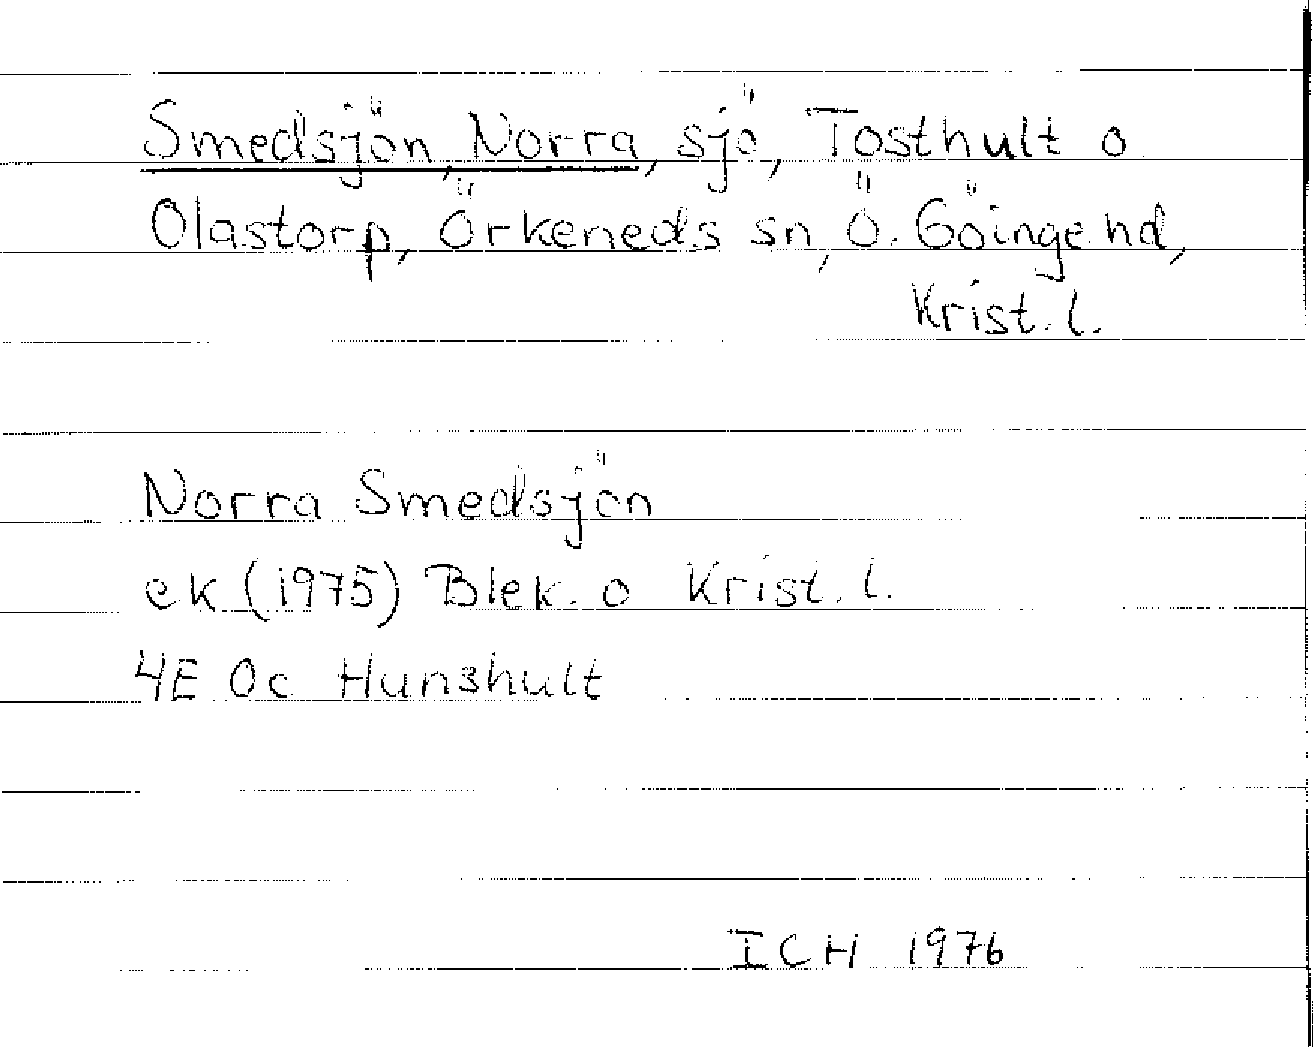 Smedsjön, Norra, sjö, Tosthult o
Olastorp, Örkeneds sn, Ö. Göinge hd,
Krist. l.
Norra Smedsjön
ek (1975) Blek. o Krist. l.
4E 0c Hunshult
ICH 1976